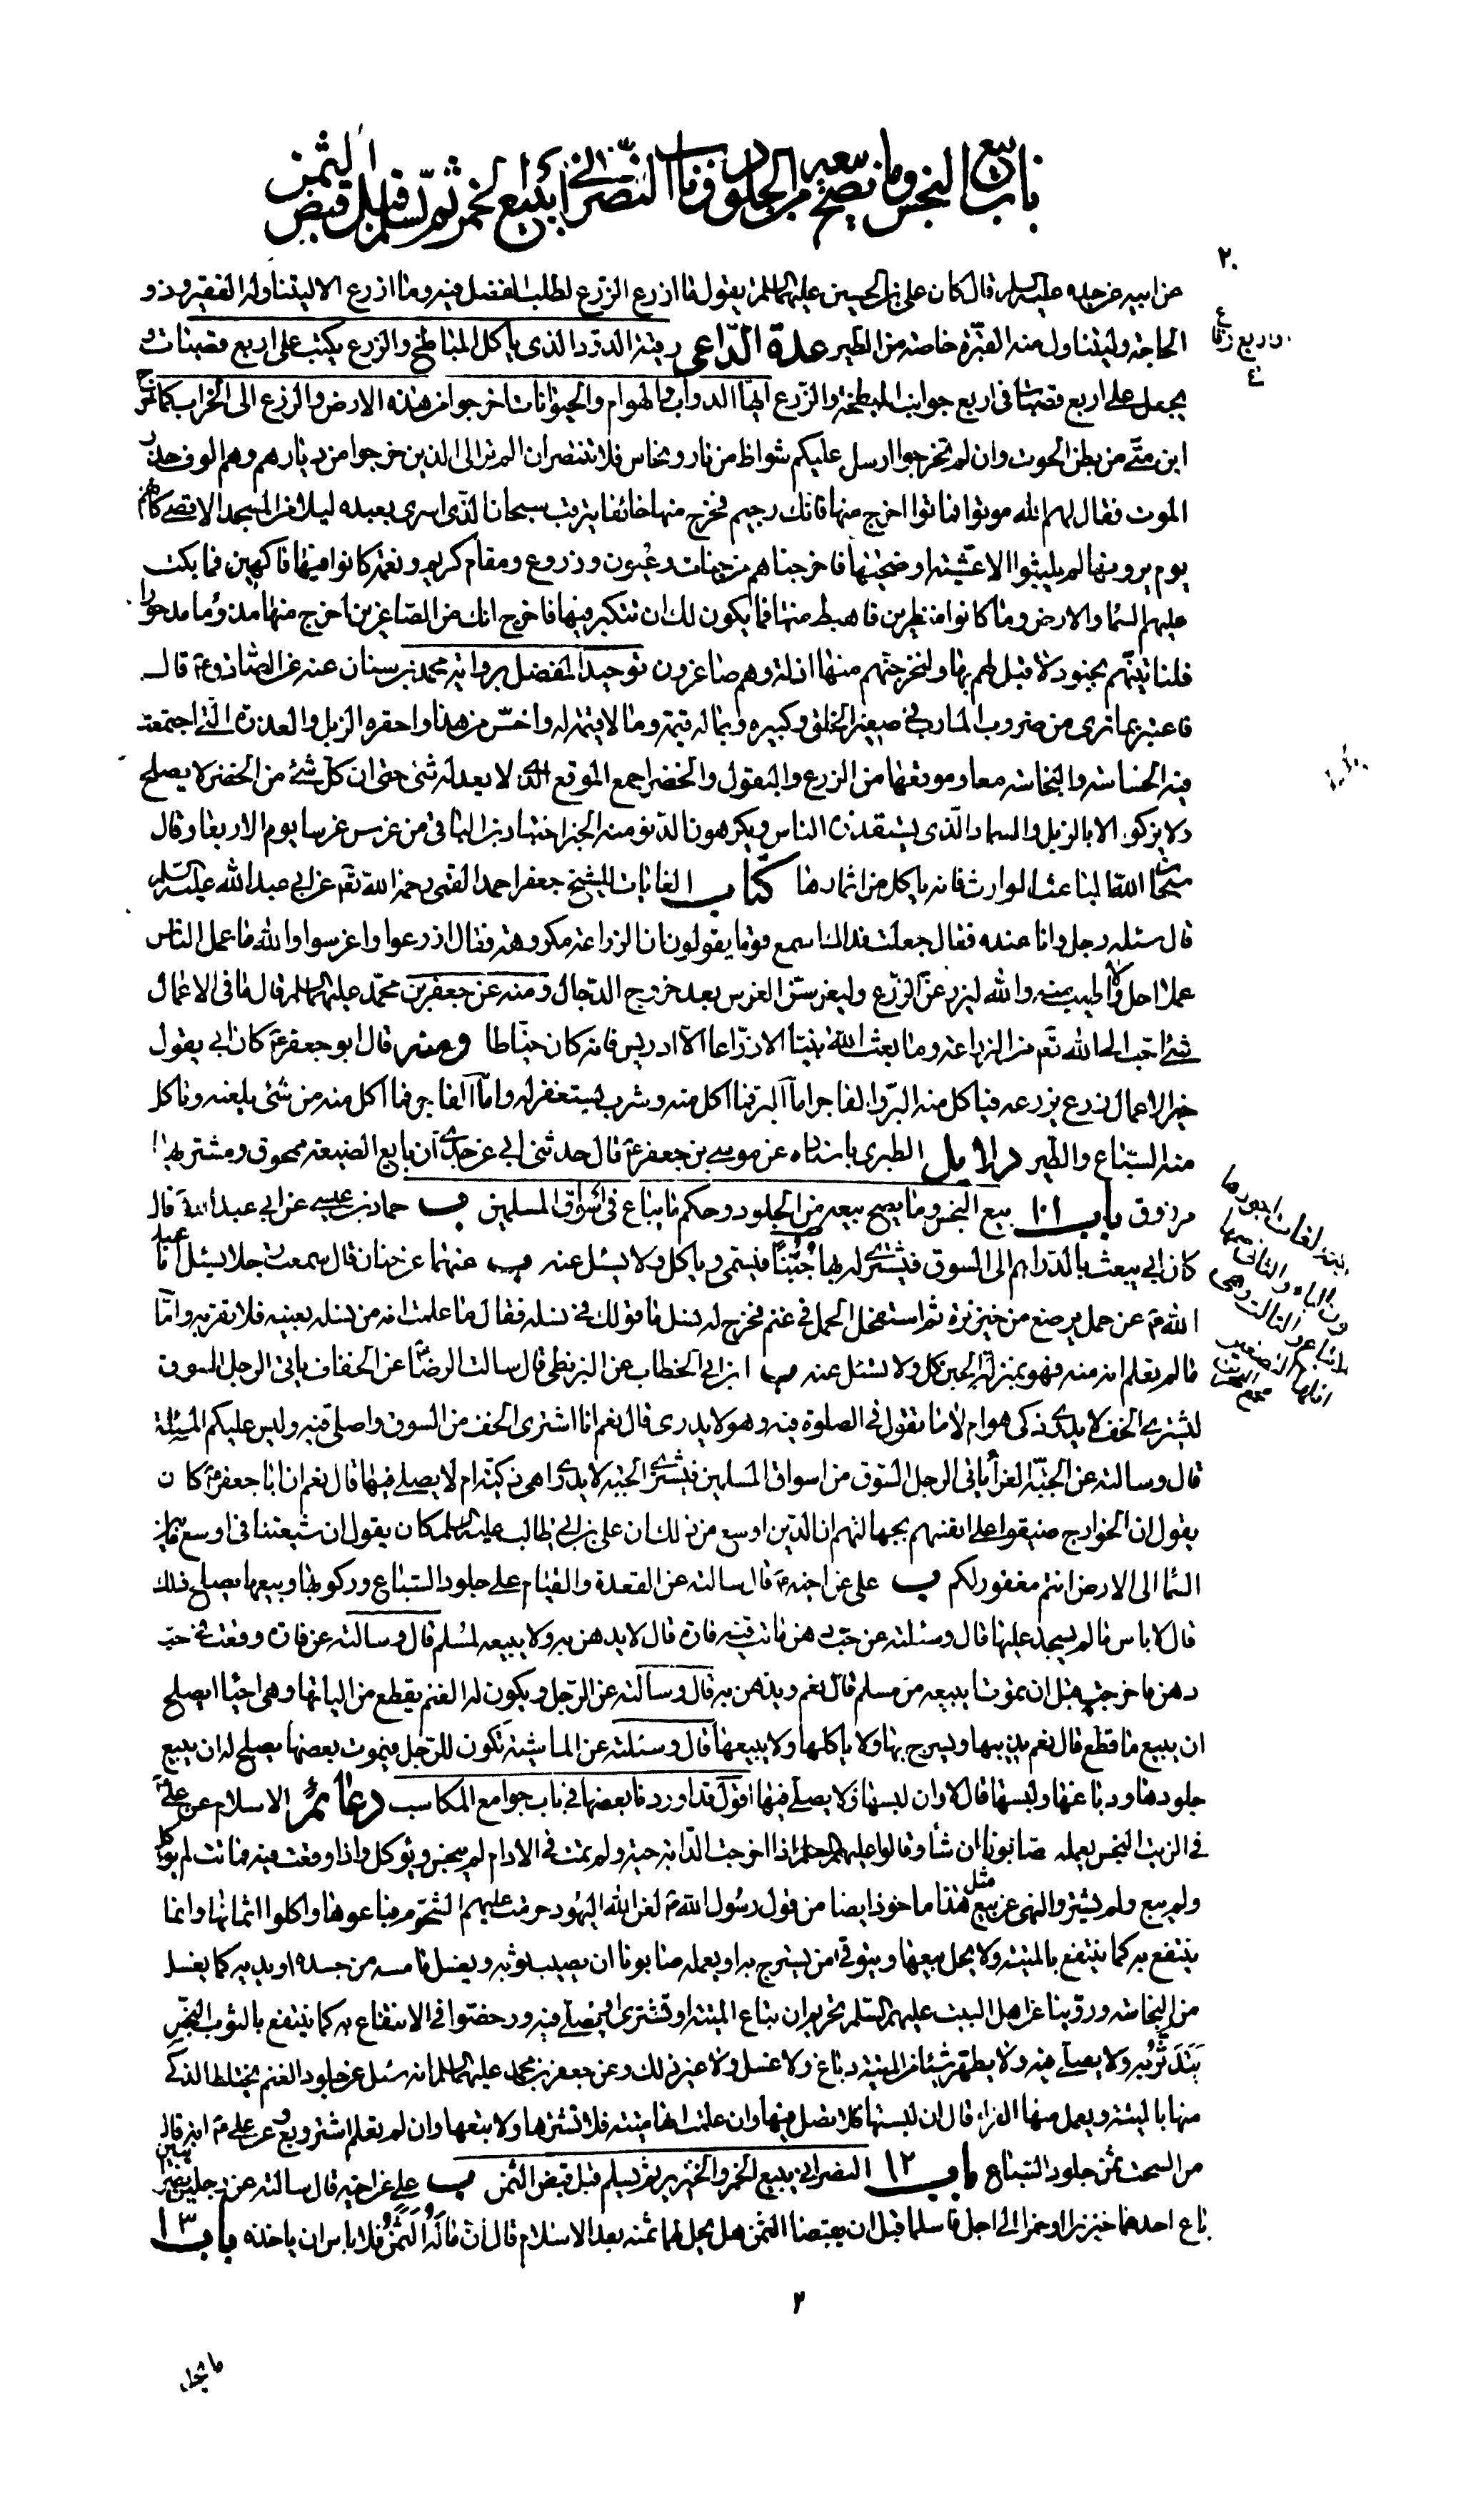 باب بيع النجس وما يصح بيعه من الجلود وباب النصراني يبيع الخمر ثم يسلم قبل قبض الثمن
٢٠
عن ابيه عن جده عليه السلم قال كان على بن الحسين عليهما السلم يقول ما ازرع الزرع لطلب الفضل فيه وما ازرع الا ليتناوله الفقير وذو
الحاجة وليتناول منه القبّرة خاصة من الطير عدة الدّاعى رقية الدود الذى ياكل المباطخ والزرع يكتب على اربع قصبات و
يجعل على اربع قصبات فى اربع جوانب المبطخة والزرع ايها الدواب والهوام والحيوانات اخرجوا من هذه الارض والزرع الى الخراب كما خرج
ابن متّى من بطن الحوت وان لم تخرجوا ارسل عليكم شواظ من نار ونحاس فلا تنتصران الم تر الى الذين خرجوا من ديارهم وهم الوف حذر
الموت فقال لهم الله موتوا فماتوا اخرج منها فانك رجيم فخرج منها خائفا يترقب سبحان الذى اسرى بعبده ليلا من المسجد الاقصى كانهم
يوم يرونها لم يلبثوا الا عشية او ضحيها فاخرجناهم من جنات وعيون وزروع ومقام كريم ونعمة كانوا فيها فاكهين فما بكت
عليهم السماء والارض وما كانوا منظرين فاهبط منها فما يكون لك ان تتكبر فيها فاخرج انك من الصاغرين اخرج منها مذؤما مدحورا
فلناتينهم بجنود لا قبل لهم بها ولنخرجنهم منها اذلة وهم صاغرون توحيد المفضل برواية محمد بن سنان عنه عن الصادق ع قال
فاعتبر بما ترى من ضروب المارب فى صغير الخلق وكبيره وبما له قيمة وما لا قيمة له واخسّ من هذا واحقره الزبل والعذرة التى اجتمعت
فيه الخساسة والنجاسة معا وموقعها من الزرع والبقول والخضر اجمع الموقع الذى لا يعدله شئ حتى ان كل شئ من الخضر لا يصلح
ولا يزكو الا بالزبل والسماد الذى يستقذره الناس ويكرهون الدنو منه
سبحان الله الباعث الوارث فانه ياكل من اثمارها كتاب الغايات للشيخ جعفر احمد القمى رحمه الله تعم عن ابى عبد الله عليه السلم
قال سئله رجل وانا عنده فقال جعلت فداك اسمع قوما يقولون ان الزراعة مكروهة فقال ازرعوا واغرسوا والله ما عمل الناس
عملا احل ولا اطيب منه والله ليزرعن الزرع وليغرسن الغرس بعد خروج الدجال ومنه عن جعفر بن محمد عليهما السلم قال ما فى الاعمال
شئ احب الى الله تعم من الزراعة وما بعث الله نبيّا الا زرّاعا الا ادريس فانه كان خيّاطا ومنه قال ابو جعفر ع كان ابى يقول
خير الاعمال زرع يزرعه فياكل منه البر والفاجر اما البر فما اكل منه وشرب يستغفر له واما الفاجر فما اكل منه من شئ يلعنه وتاكل
منه السباع والطير دلايل الطبرى باسناده عن موسى بن جعفر ع قال حدثنى ابى عن جدى ان بايع الضيعة ممحوق ومشتريها
مرزوق باب ١٠١ بيع النجس وما يصح بيعه من الجلود وحكم ما يباع فى اسواق المسلمين ب حماد بن عيسى عن ابى عبد الله قال
كان ابى يبعث بالدراهم الى السوق فيشترى له بها جُبُنًّا فيسمى وياكل ولا يسئل عنه ب عنهما عن حنان قال سمعت رجلا يسئل ابا عبد
الله ع عن حمل رضع من خنزيرة ثم استفحل الحمل فى غنم فخرج له نسل ما قولك فى نسله فقال ما علمت انه من نسله بعينه فلا تقربه واما
ما لم تعلم انه منه فهو بمنزلة الجبن كل ولا تسئل عنه ب ابن ابى الخطاب عن البزنطى قال سالت الرضا ع عن الخفاف ياتى الرجل السوق
ليشترى الخف لا يدرى ذكى هو ام لا ما تقول فى الصلوة فيه وهو لا يدرى قال نعم انا اشترى الخف من السوق واصلى فيه وليس عليكم المسئلة
قال وسالته عن الجبّة الفراء ياتى الرجل السوق من اسواق المسلمين فيشترى الجبة لا يدرى اهى ذكية ام لا يصلى فيها قال نعم ان ابا جعفر ع كان
يقول ان الخوارج ضيقوا على انفسهم بجهالتهم ان الدين اوسع من ذلك ان على بن ابى طالب عليه السلم كان يقول ان شيعتنا فى اوسع ما بين
السماء الى الارض انتم مغفور لكم ب على عن اخيه ع قال سالته عن القعدة والقيام على جلود السباع وركوبها وبيعها يصلح ذلك
قال لا باس ما لم يسجد عليها قال وسئلته عن حب دهن ماتت فيه فارة قال لا يدهن به ولا يبيعه لمسلم قال وسالته عن فارة وقعت فى حب
دهن فاخرجت قبل ان يموت ايبيعه من مسلم قال نعم ويدهن به قال وسالته عن الرجل ويكون له الغنم يقطع من الياتها وهى احياء ايصلح
ان يبيع ما قطع قال نعم يذيبها ويسرج بها ولا ياكلها ولا يبيعها قال وسئلته عن الماشية تكون للرجل فيموت بعضها يصلح له ان يبيع
جلودها ودباغها ولبسها قال لا وان لبسها فلا يصلى فيها اقول قد اوردنا بعضها فى باب جوامع المكاسب دعائم الاسلام عن على ع
فى الزيت النجس يعمله صابونا ان شاء وقالوا عليهم السلم اذا اخرجت الدابة حية ولم تمت فى الادام لم ينجس ويؤكل واذا وقعت فيه فماتت لم يؤكل
ولم يبع ولم يشتر والنهى عن بيع مثل هذا ماخوذ ايضا من قول رسول الله ص لعن الله اليهود حرمت عليهم الشحوم فباعوها واكلوا اثمانها وانما
ينتفع به كما ينتفع بالميتة ولا يحل بيعها ويتوقى من يسرج به او يعمله صابونا ان يصيب ثوبه ويغسل ما مسه من جسده او يديه كما يغسل
من النجاسة وروينا عن اهل البيت عليهم السلم تحريم ان تباع الميتة او تشترى او يصلى فيه ورخصوا فى الانتفاع به كما ينتفع بالثوب النجس
يتدثر به ولا يصلى فيه ولا يطهر شيئا من الميتة دباغ ولا غسل ولا غير ذلك وعن جعفر بن محمد عليهما السلم انه سئل عن جلود الغنم يختلط الذكى
منها بالميتة ويعمل منها الفراء قال ان لبستها فلا تصل فيها وان علمت انها ميتة فلا تشترها ولا تبعها وان لم تعلم اشتر وبع وعن على ع انه قال
من السحت ثمن جلود السباع باب ١٢ النصرانى يبيع الخمر والخنزير ثم يسلم قبل قبض الثمن ب على عن اخيه قال سالته عن رجلين نصرانيين
باع احدهما خنزيرا او خمرا الى اجل فاسلما قبل ان يقبضا الثمن هل يحل لهما ثمنه بعد الاسلام قال انما له الثمن فلا باس ان ياخذه باب ١٣
٢